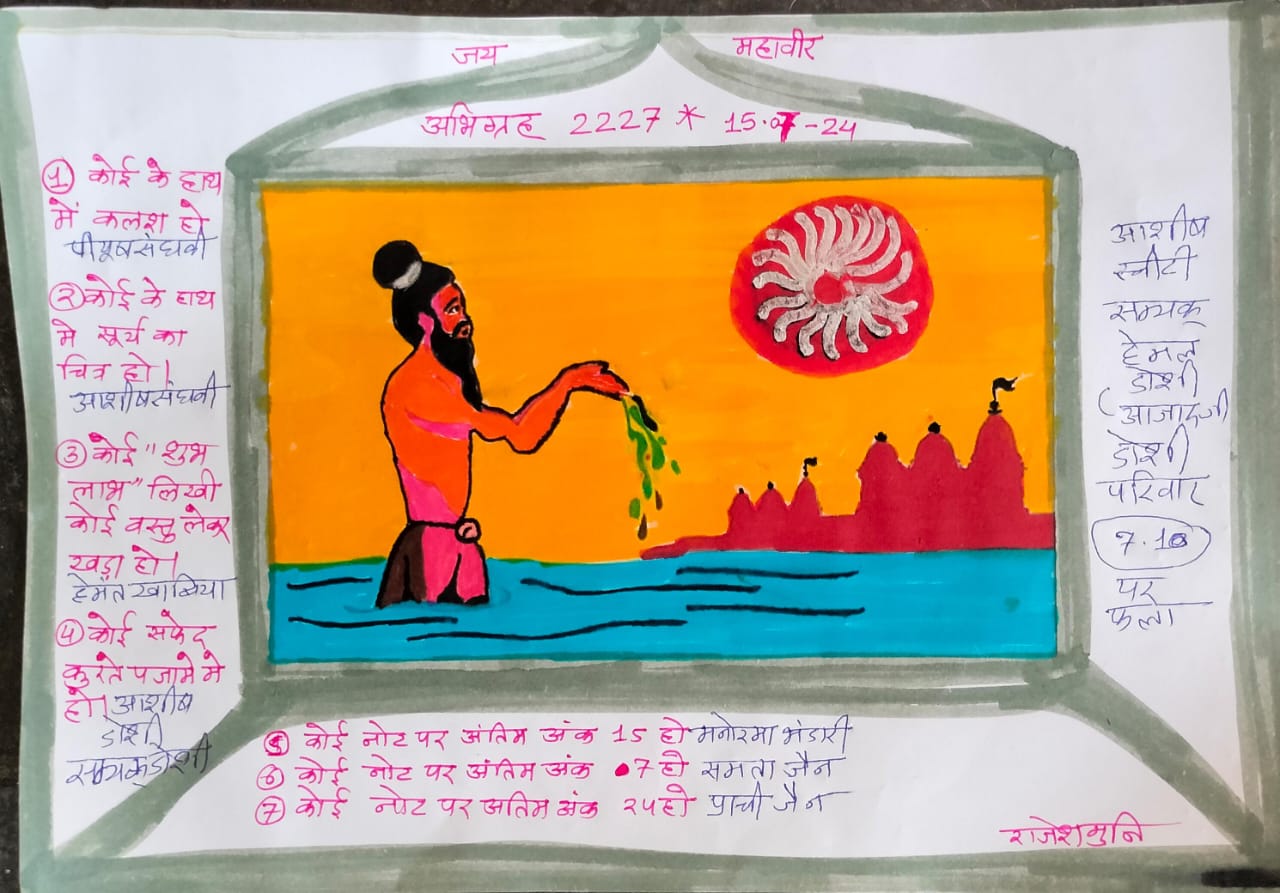 जय महावीर
अभिग्रह 2227 * 15.07-24
① कोई के हाथ
में कलश हो
पीयूष संघवी
② कोई के हाथ
मे सूर्य का
चित्र हो।
आशीष संघवी
③ कोई "शुभ
लाभ" लिखी
कोई वस्तु लेकर
खड़ा हो।
हेमंत खाब्यिा
④ कोई सफेद
कुरते पजामे मे
हो। आशीष
डोशी
सम्यक् डोशी
⑤ कोई नोट पर अंतिम अंक 15 हो मनोरमा भंडारी
⑥ कोई नोट पर अंतिम अंक 07 हो समता जैन
⑦ कोई नोट पर अंतिम अंक २५ हो प्राची जैन
आशीष
स्वीटी
सम्यक्
हेमल
डोशी
(आजादजी
डोशी
परिवार
7.10
पर
फला
राजेशमुनि